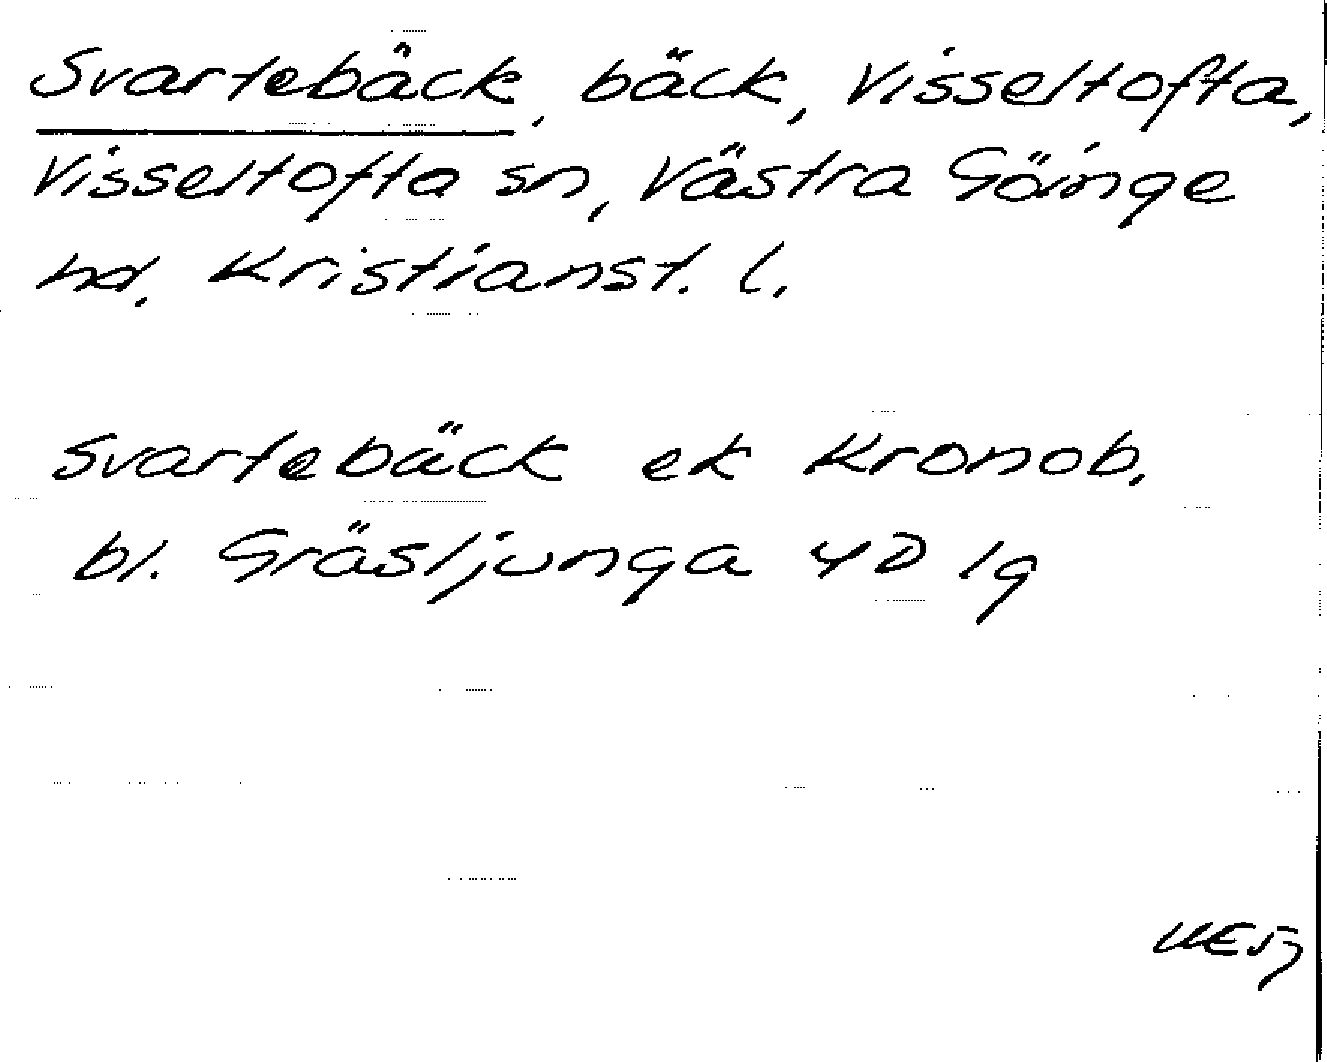 Svartebäck, bäck, Visseltofta,
Visseltofta sn, Västra Göinge
hd. Kristianst. l.
Svartebäck ek Kronob.
bl. Gräsljunga 4D lg